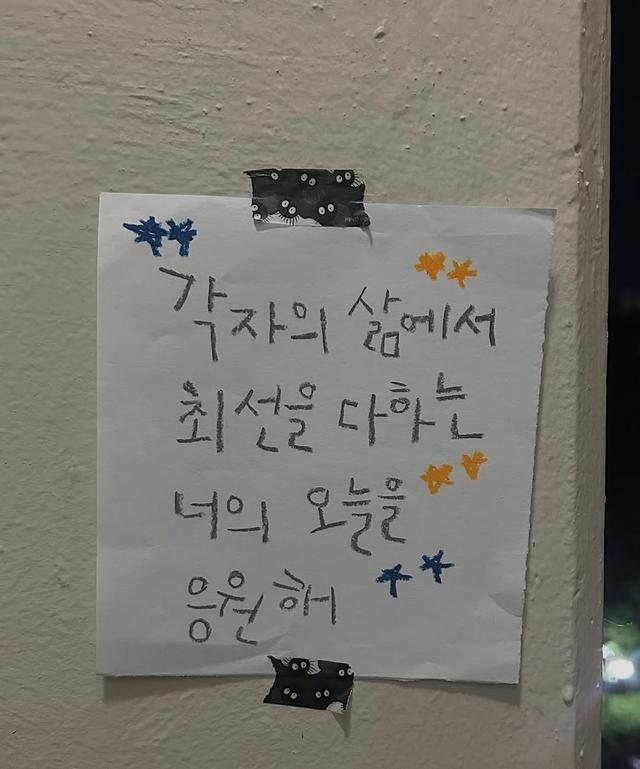 각자의 삶에서
최선을 다하는
너의 오늘을
응원해